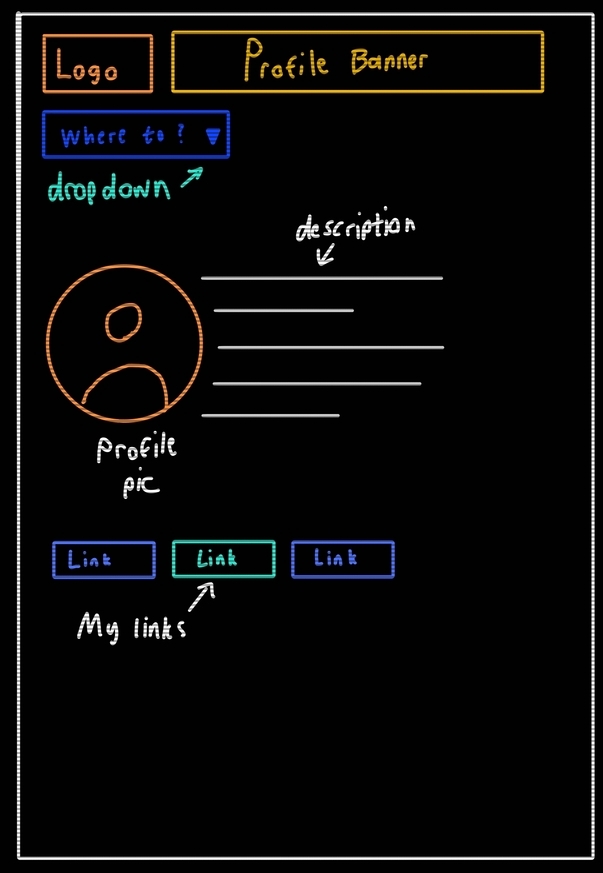 Logo
Profile Banner
Where to?
dropdown
description
Profile
pic
Link
Link
Link
My links